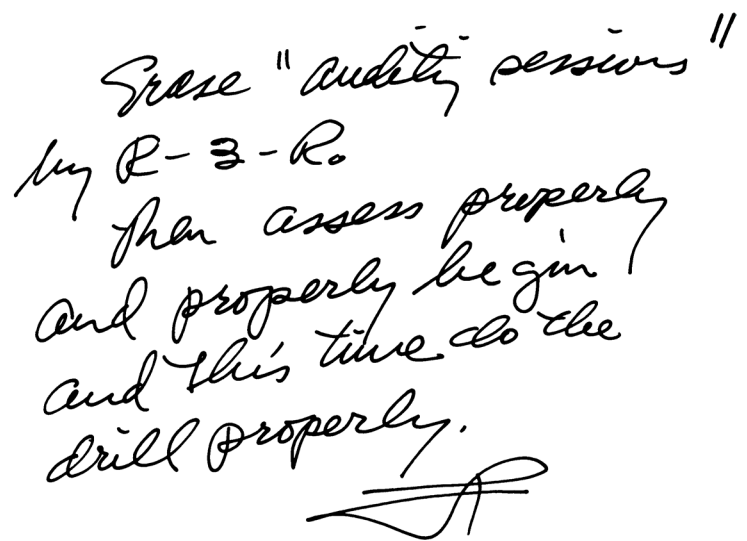 Erase "auditing sessions"
by R-3-R.
Then assess properly
and properly begin
and this time do the
drill properly.